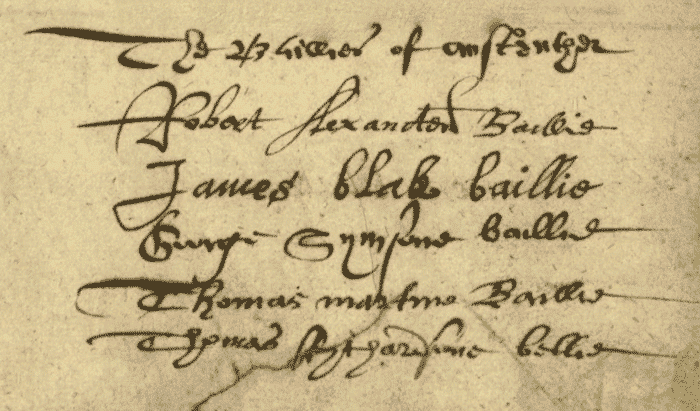 The Baillies of anstruther
Robert Alexander Baillie
James blak baillie
George Symsone baillie
Thomas martine Baillie
Thomas Rychardsone bellie